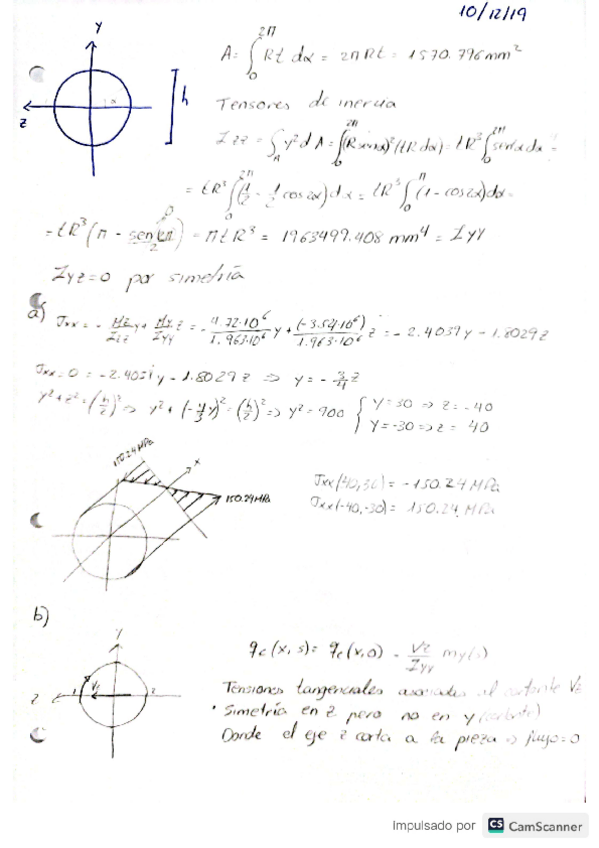 10/12/19
Y
Z
α
h
A = ∫₀^{2π} Rt dα = 2πRt = 1570.796 mm²
Tensores de inercia
Izz = ∫_A y² dA = ∫₀^{2π} (R senα)² (tR dα) = tR³ ∫₀^{2π} sen²α dα =
= tR³ ∫₀^{2π} (1/2 - 1/2 cos2α) dα = tR³ ∫₀^{π} (1 - cos2α) dα =
= tR³ (π - sen2π/2) = πtR³ = 1963499.408 mm⁴ = Iyy
0
Iyz = 0 por simetría
a)
σxx = - Mz/Izz y + My/Iyy z = - 4.72·10⁶/1.963·10⁶ y + (-3.54·10⁶)/1.963·10⁶ z = - 2.4039y - 1.8029z
σxx = 0 = -2.4039y - 1.8029z => y = - 3/4 z
y² + z² = (h/2)² => y² + (-4/3 y)² = (h/2)² => y² = 900 { y = 30 => z = -40
y = -30 => z = 40
150.24 MPa
x
150.24 MPa
σxx(40,30) = -150.24 MPa
σxx(-40,-30) = 150.24 MPa
b)
Y
Z
Vz
qc(x,s) = qc(x,0) - Vz/Iyy my(s)
Tensiones tangenciales asociadas al cortante Vz
· Simetría en z pero no en y (cortante)
Donde el eje z corta a la pieza => flujo = 0
Impulsado por CS CamScanner